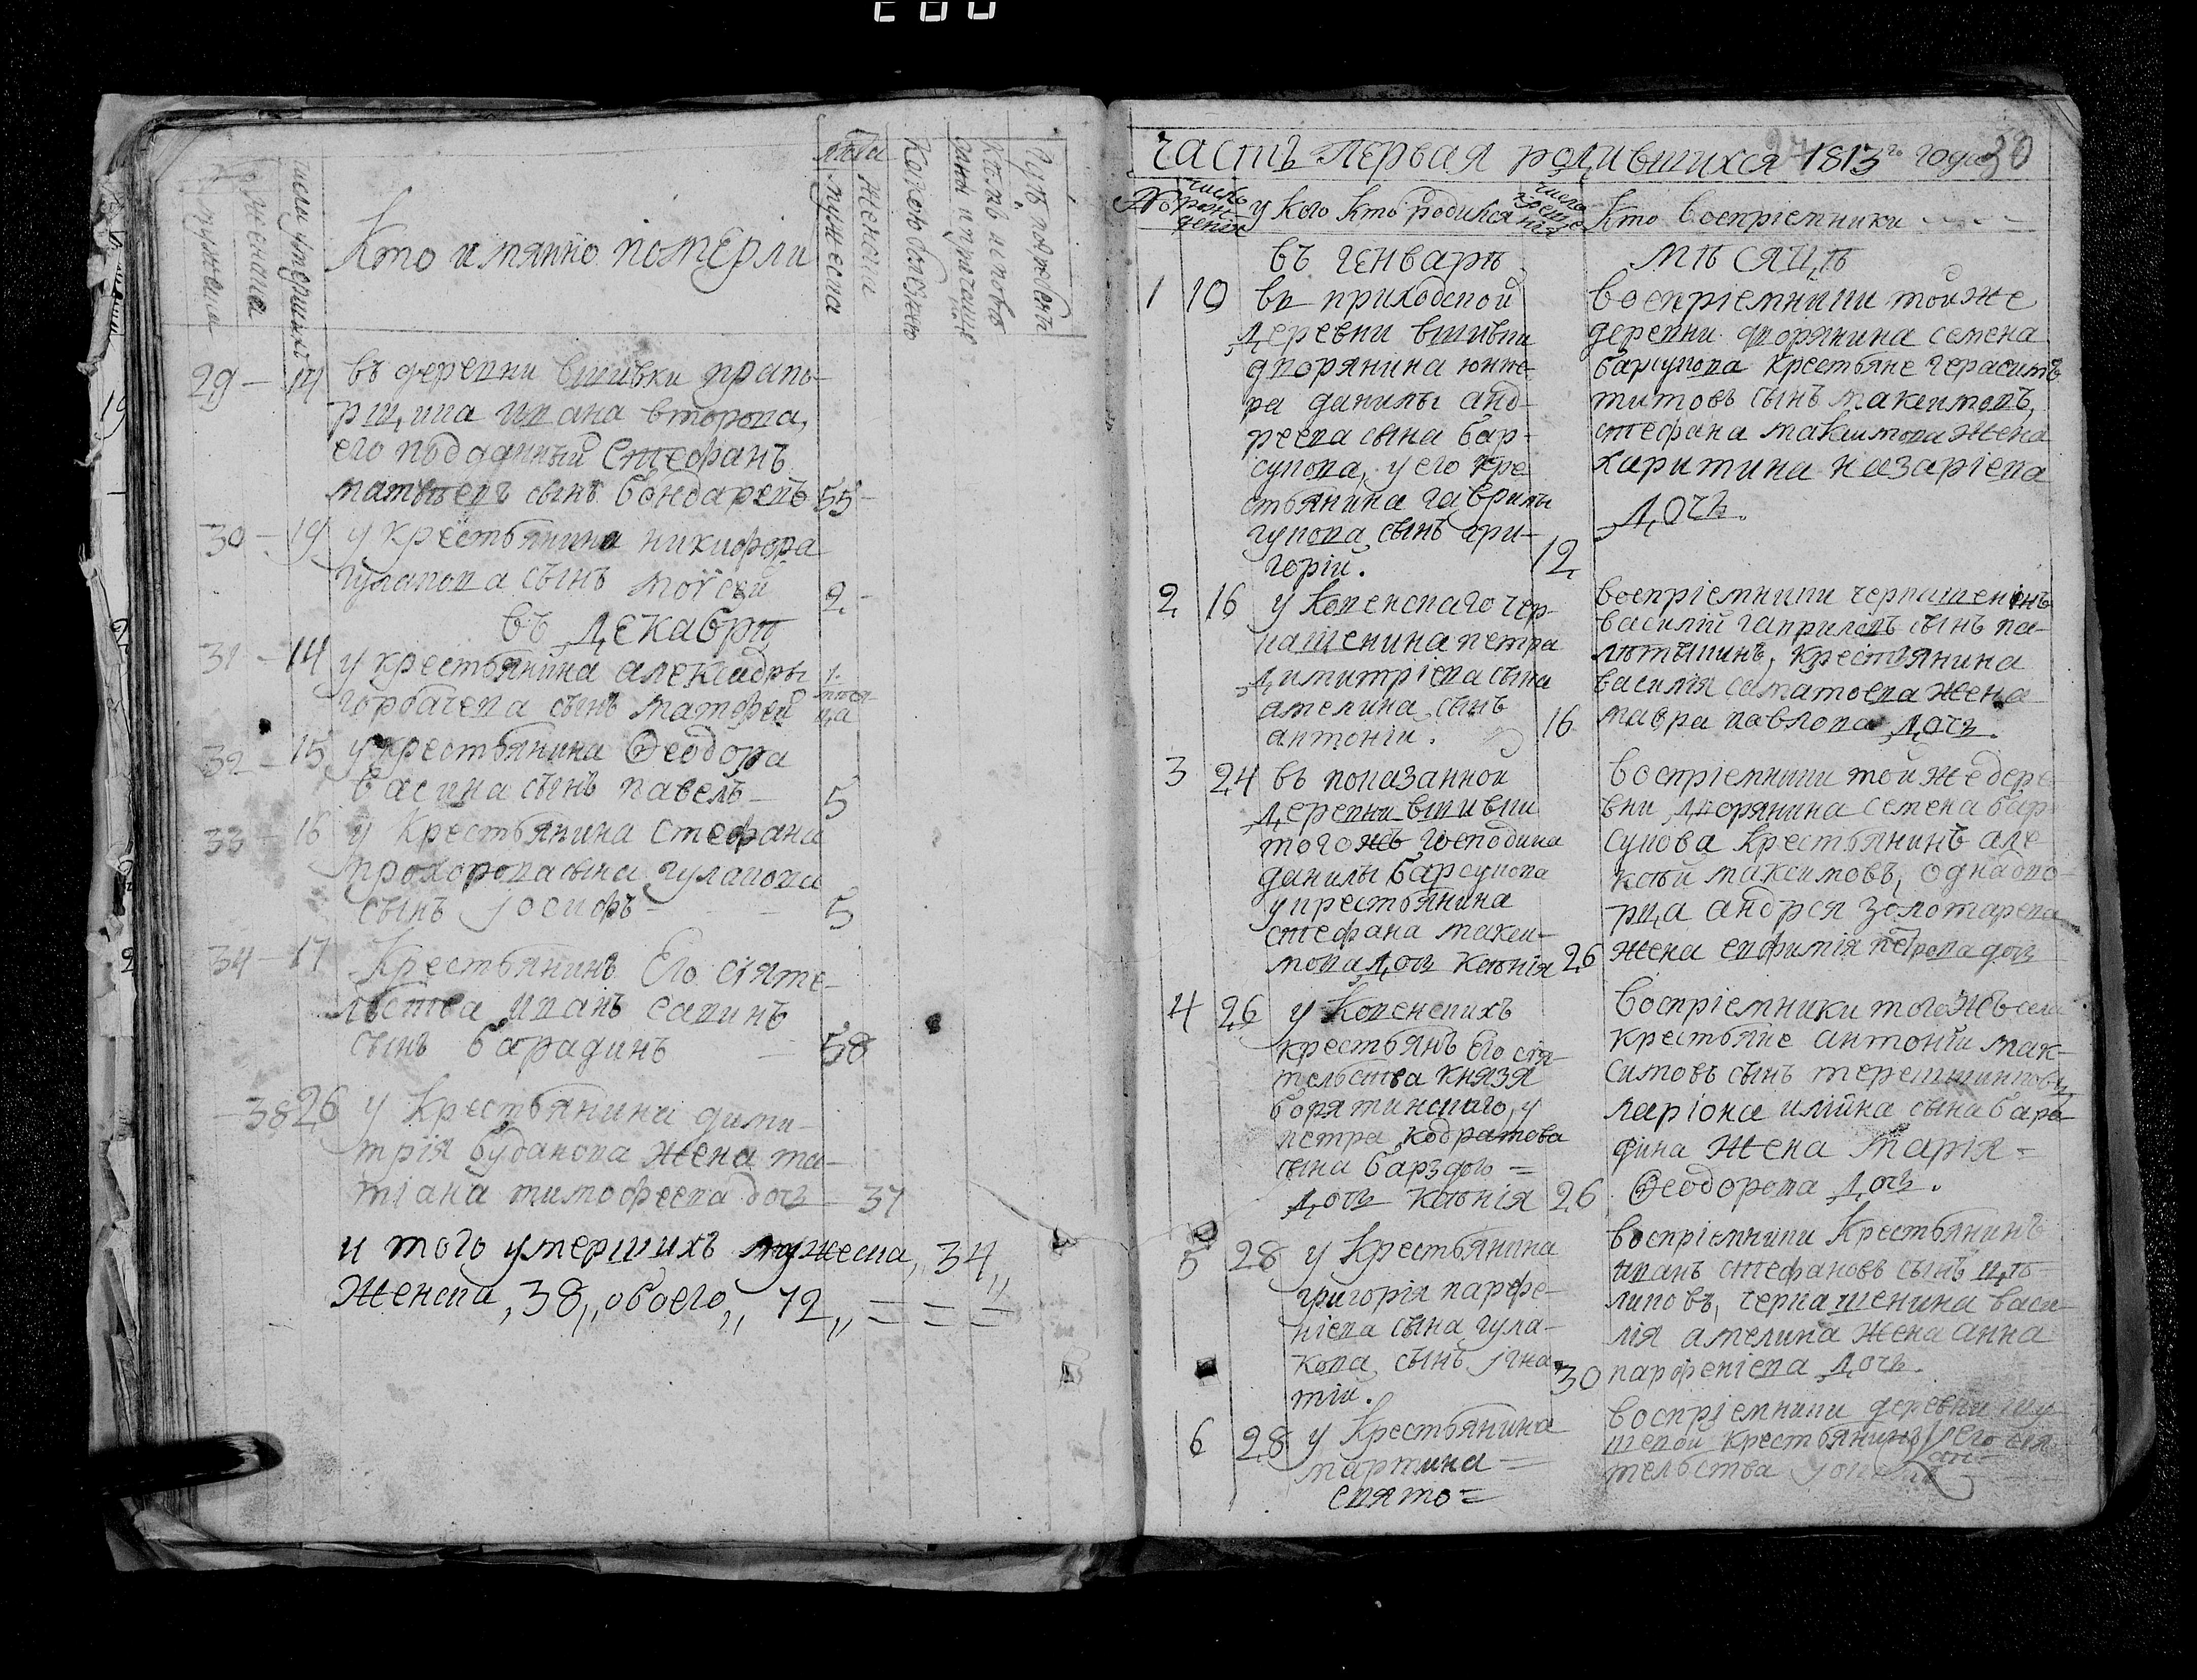 Кто имянно померли
лѣта
мужеска
женски
Какою болезнію
Гдѣ погребены
числа умершихъ
женска
мужеска
29 – 14 въ деревни вшивки прапо-
рщика ивана второва,
его подданный Стефанъ
матвѣевъ сынъ бондаревъ 55 –
30 – 19 у крестьянина никифора
гулакова сынъ моисей 2 –
въ декабрѣ
31 – 14 у крестьянина алексадры 1
горбачева сынъ матфей меся-
ца
32 – 15 у крестьянина Ѳеодора
васина сынъ павелъ – 5
33 – 16 у крестьянина стефана
прохорова сына гулакова
сынъ Іосифъ – – 5
34 – 17 Крестьянинъ Его сіяте-
льства иванъ савинъ
сынъ барадинъ – 58
– 38 26 у Крестьянина дими-
трія буданова жена та-
тіана тимофеева дочь – 37
и того умершихъ мужеска, 34,,
Женска, 38,, обоего,, 72,, = = =
часть первая родившихся 1813го года 30
№ число рож-
денія у кого кто родился число креще-
нія Кто воспріемники
въ генварѣ мѣсяцѣ
1 10 въ приходской
деревни вшивки
дворянина юнке-
ра данилы анд-
реева сына бар-
сукова, у его кре
стьянина гаврилы
гупова сынъ гри-
горій. 12
воспріемники той же
деревни дворянина семена
барсукова крестьяне герасимъ
титовъ сынъ максимовъ,
стефана максимова жена
харитина назаріева
дочь.
2 16 у Ковенскаго чер-
пашенина петра
димитріева сына
амелина сынъ
антоній. 16
воспріемники черпашенинъ
василій гавриловъ сынъ па-
люткинъ, крестьянина
василія саматоева жена
мавра павлова дочь.
3 24 въ показанной
деревни вшивки
того жъ господина
данилы барсукова
у крестьянина
стефана макси-
мова дочь Ксенія 26
воспріемники той же дере-
вни дворянина семена бар-
сукова Крестьянинъ але-
ксѣй максимовъ, однодво-
рца андрея золотарева
жена евфимія петрова дочь
4 26 у Ковенскихъ
крестьянъ Его сія-
тельства князя
борятинскаго, у
петра кодратова
сына барздов =
дочь Ксенія 26
Воспріемники того жъ села
крестьяне антоній мак-
симовъ сынъ
ларіона илійна сына бара-
дина жена марія =
Ѳеодорова дочь.
5 28 у Крестьянина
григорія парфе-
ніева сына гула-
кова сынъ Игна-
тій. 30
воспріемники Крестьянинъ
иванъ стефановъ сынъ цѣ-
ликовъ, черпашенина васи-
лія амелина жена анна
парфеніева дочь.
6 28 у Крестьянина
мартина =
свято =
воспріемники деревни шу-
шевой крестьянинъ его сія-
тельства